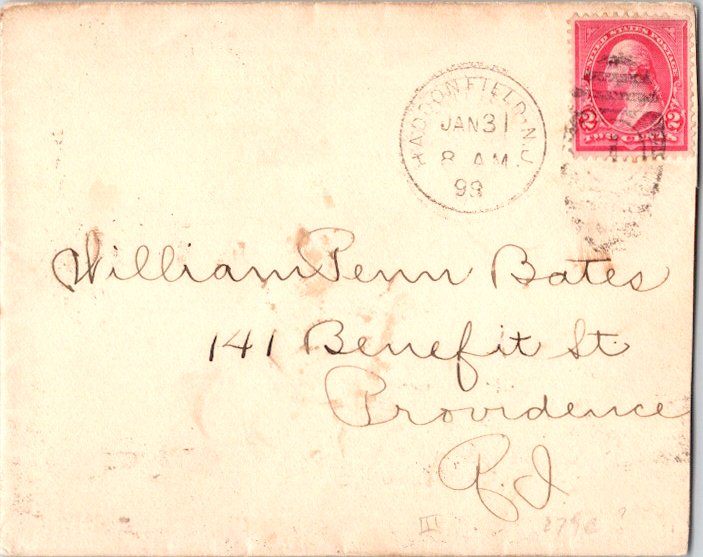 UNITED STATES POSTAGE
2 2
TWO CENTS
HADDONFIELD. N.J.
JAN 31
8 AM
99
William Penn Bates
141 Benefit St.
Providence
R. I
III